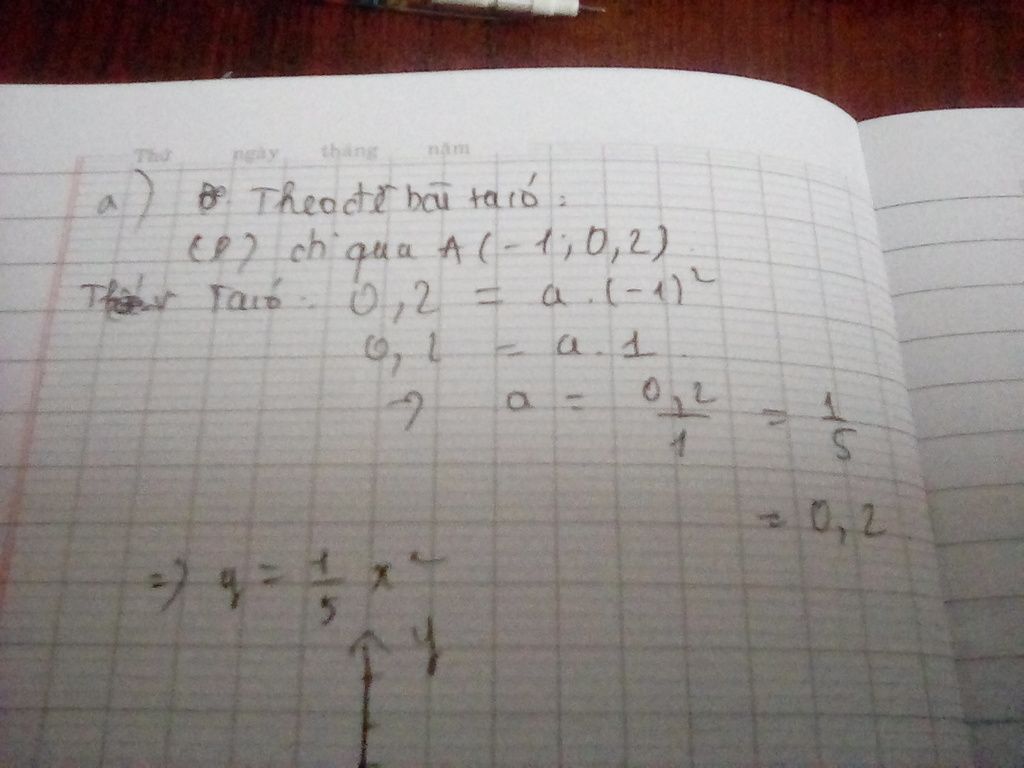 Thứ ngày tháng năm
a) Theo đề bài ta có:
(P) đi qua A(-1; 0,2).
Ta có: 0,2 = a.(-1)²
0,2 = a.1.
→ a = 0,2/1 = 1/5
= 0,2
=> y = 1/5 x²
y